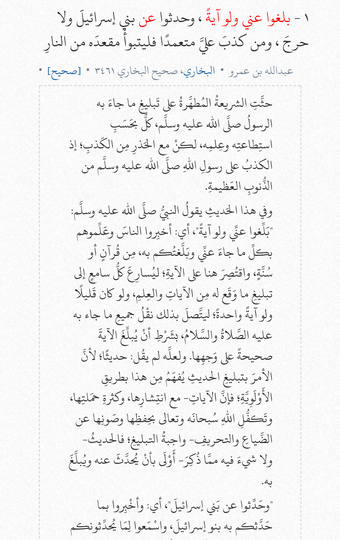 ١ - بلغوا عني ولو آيةً ، وحدثوا عن بني إسرائيلَ ولا
حرجَ ، ومن كذبَ عليَّ متعمدًا فليتبوأْ مقعدَه من النارِ
عبدالله بن عمرو • البخاري، صحيح البخاري ٣٤٦١ • [صحيح] •
حثَّتِ الشريعةُ المُطهَّرةُ على تَبليغِ ما جاءَ به
الرسولُ صلَّى الله عليه وسلَّم، كلٌّ بحَسَبِ
استِطاعتِه وعِلمِه، لكنْ مع الحَذرِ مِن الكَذبِ؛ إذ
الكذبُ على رسولِ اللهِ صلَّى الله عليه وسلَّم من
الذُّنوبِ العَظيمةِ.
وفي هذا الحَديثِ يقولُ النبيُّ صلَّى الله عليه وسلَّم:
"بَلِّغوا عنِّي ولو آيةً"، أي: أخبِروا الناسَ وعَلِّموهم
بكلِّ ما جاءَ عنِّي وبَلَّغتُكم به، مِن قُرآنٍ أو
سُنَّةٍ، واقتُصِرَ هنا على الآيةِ؛ ليُسارِعَ كلُّ سامعٍ إلى
تبليغِ ما وَقَع له مِن الآياتِ والعِلمِ، ولو كان قَليلًا
ولو آيةً واحدةً؛ ليتَّصلَ بذلك نقْلُ جميعِ ما جاء به
عليه الصَّلاةُ والسَّلامُ، بشَرْطِ أنْ يُبلِّغَ الآيةَ
صحيحةً على وَجهِها. ولعلَّه لم يقُل: حديثًا؛ لأنَّ
الأمرَ بتبليغِ الحديثِ يُفهَمُ مِن هذا بطريقِ
الأَوْلَويَّةِ؛ فإنَّ الآياتِ- مع انتِشارِها، وكثرةِ حمَلتِها،
وتَكفُّلِ اللهِ سُبحانَه وتعالى بحِفظِها وصَونِها عن
الضَّياعِ والتحريفِ- واجبةُ التبليغِ؛ فالحديثُ-
ولا شيءَ فيه ممَّا ذُكِرَ- أَوْلَى بأنْ يُحدَّثَ عنه ويُبلَّغَ
به.
"وحَدِّثوا عن بَني إسرائيلَ"، أي: وأخْبِروا بما
حَدَّثكم به بنو إسرائيلَ، واسْمَعوا لِمَا يُحدِّثونكم